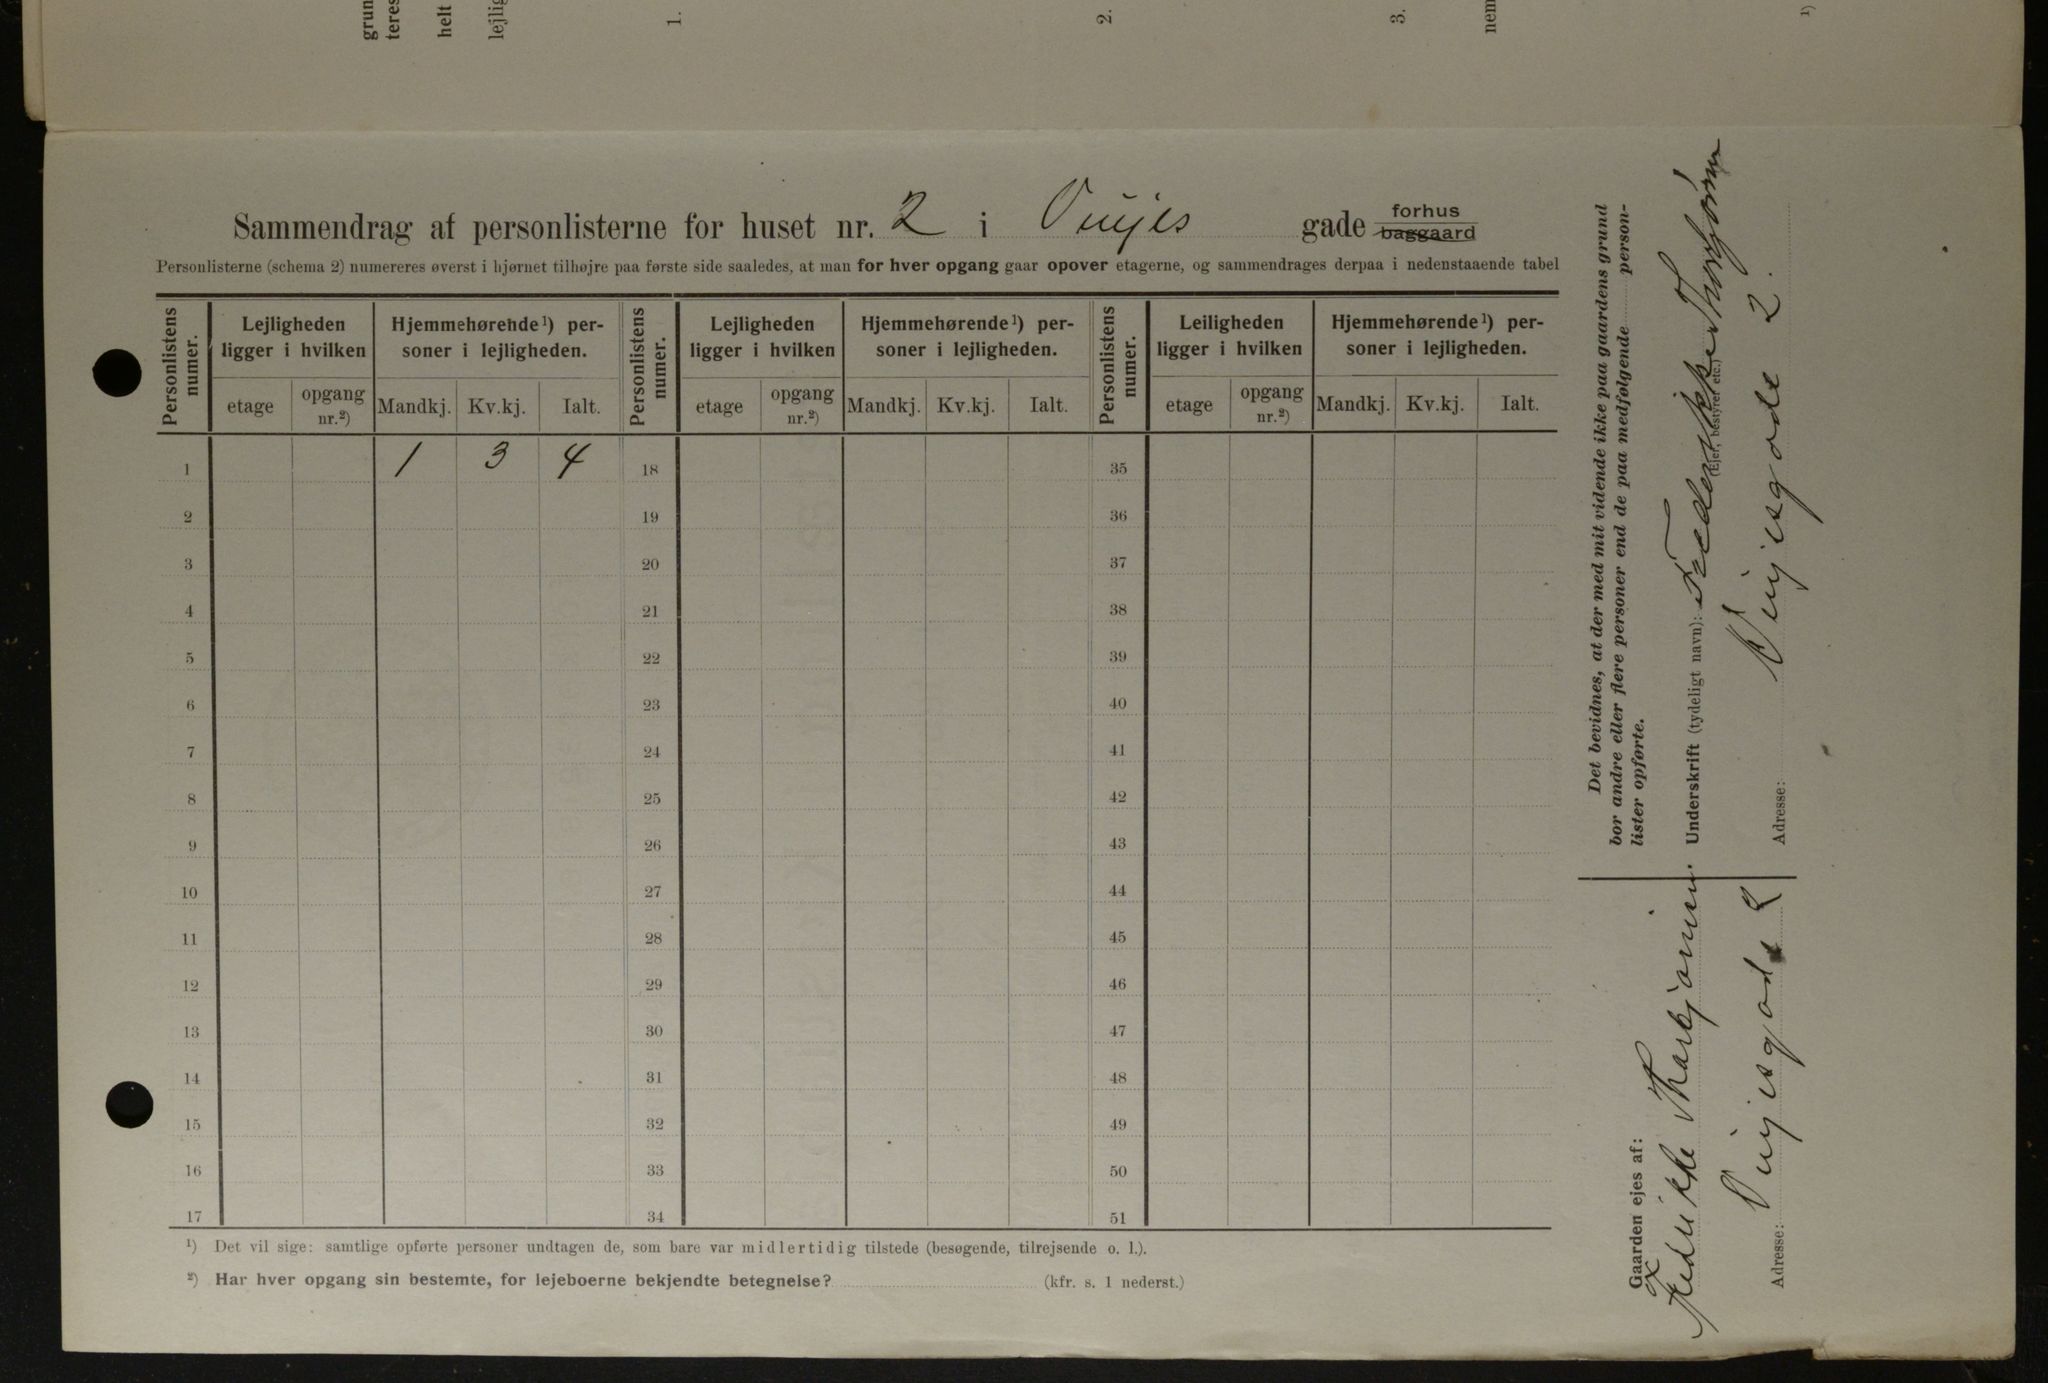 grun
teres
helt
lejlig
1.
2.
3.
nem
1)
Sammendrag af personlisterne for huset nr. 2 i Vinjes gade forhus
baggaard
Personlisterne (schema 2) numereres øverst i hjørnet tilhøjre paa første side saaledes, at man for hver opgang gaar opover etagerne, og sammendrages derpaa i nedenstaaende tabel
Personlistens numer.
Lejligheden ligger i hvilken
Hjemmehørende¹) personer i lejligheden.
Personlistens numer.
Lejligheden ligger i hvilken
Hjemmehørende¹) personer i lejligheden.
Personlistens numer.
Leiligheden ligger i hvilken
Hjemmehørende¹) personer i lejligheden.
etage opgang nr.²) Mandkj. Kv.kj. Ialt. etage opgang nr.²) Mandkj. Kv.kj. Ialt. etage opgang nr.²) Mandkj. Kv.kj. Ialt.
1 1 3 4 18 35
2 19 36
3 20 37
4 21 38
5 22 39
6 23 40
7 24 41
8 25 42
9 26 43
10 27 44
11 28 45
12 29 46
13 30 47
14 31 48
15 32 49
16 33 50
17 34 51
¹) Det vil sige: samtlige opførte personer undtagen de, som bare var midlertidig tilstede (besøgende, tilrejsende o. l.).
²) Har hver opgang sin bestemte, for lejeboerne bekjendte betegnelse? (kfr. s. 1 nederst.)
Det bevidnes, at der med mit vidende ikke paa gaardens grund
bor andre eller flere personer end de paa medfølgende person-
lister opførte.
Underskrift (tydeligt navn): Frederikke Thorbjørnsen
(Ejer, bestyrer etc.)
Adresse: Vinjesgade 2.
Gaarden ejes af:
Fredrikke Thorbjørnsen.
Adresse: Vinjesgade 2